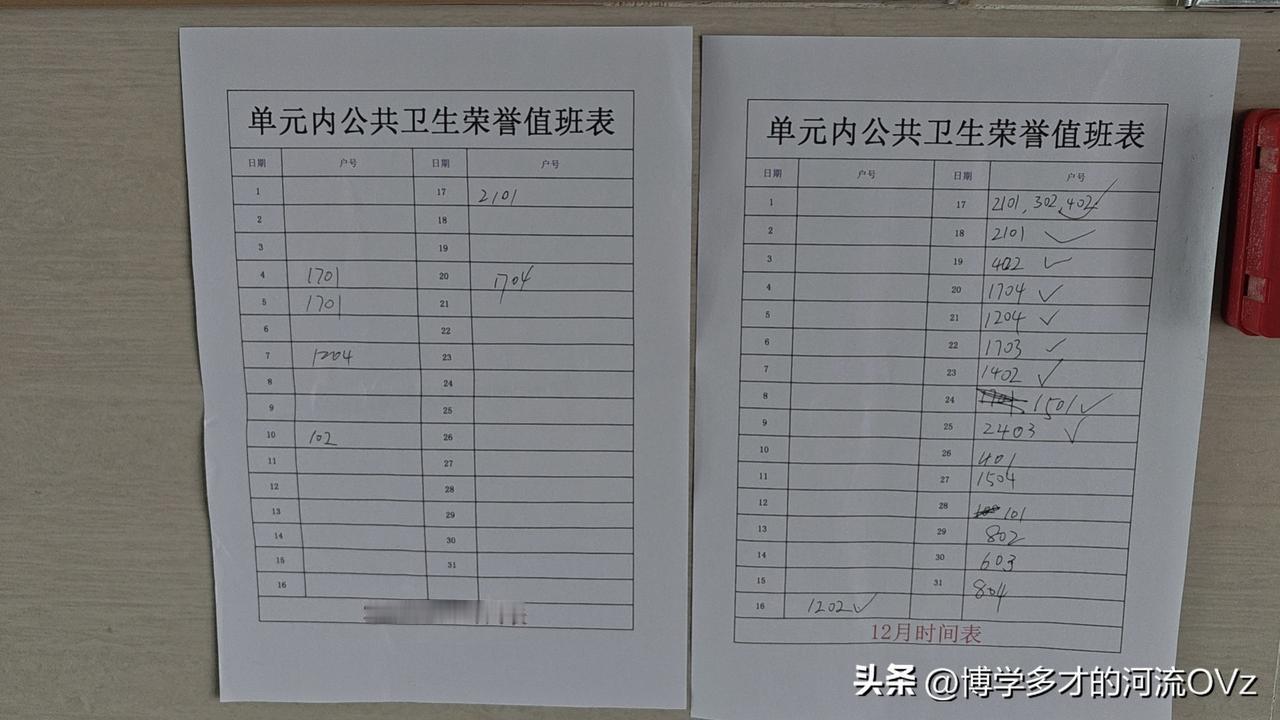 单元内公共卫生荣誉值班表
日期 户号 日期 户号
1 17 2101
2 18
3 19
4 1701 20 1704
5 1701 21
6 22
7 1204 23
8 24
9 25
10 102 26
11 27
12 28
13 29
14 30
15 31
16
单元内公共卫生荣誉值班表
日期 户号 日期 户号
1 17 2101, 302, 402 ✓
2 18 2101 ✓
3 19 402 ✓
4 20 1704 ✓
5 21 1204 ✓
6 22 1703 ✓
7 23 1402 ✓
8 24 1501 ✓
9 25 2403 ✓
10 26 401
11 27 1504
12 28 101
13 29 802
14 30 603
15 31 804
16 1202 ✓
12月时间表
头条 @博学多才的河流OVz